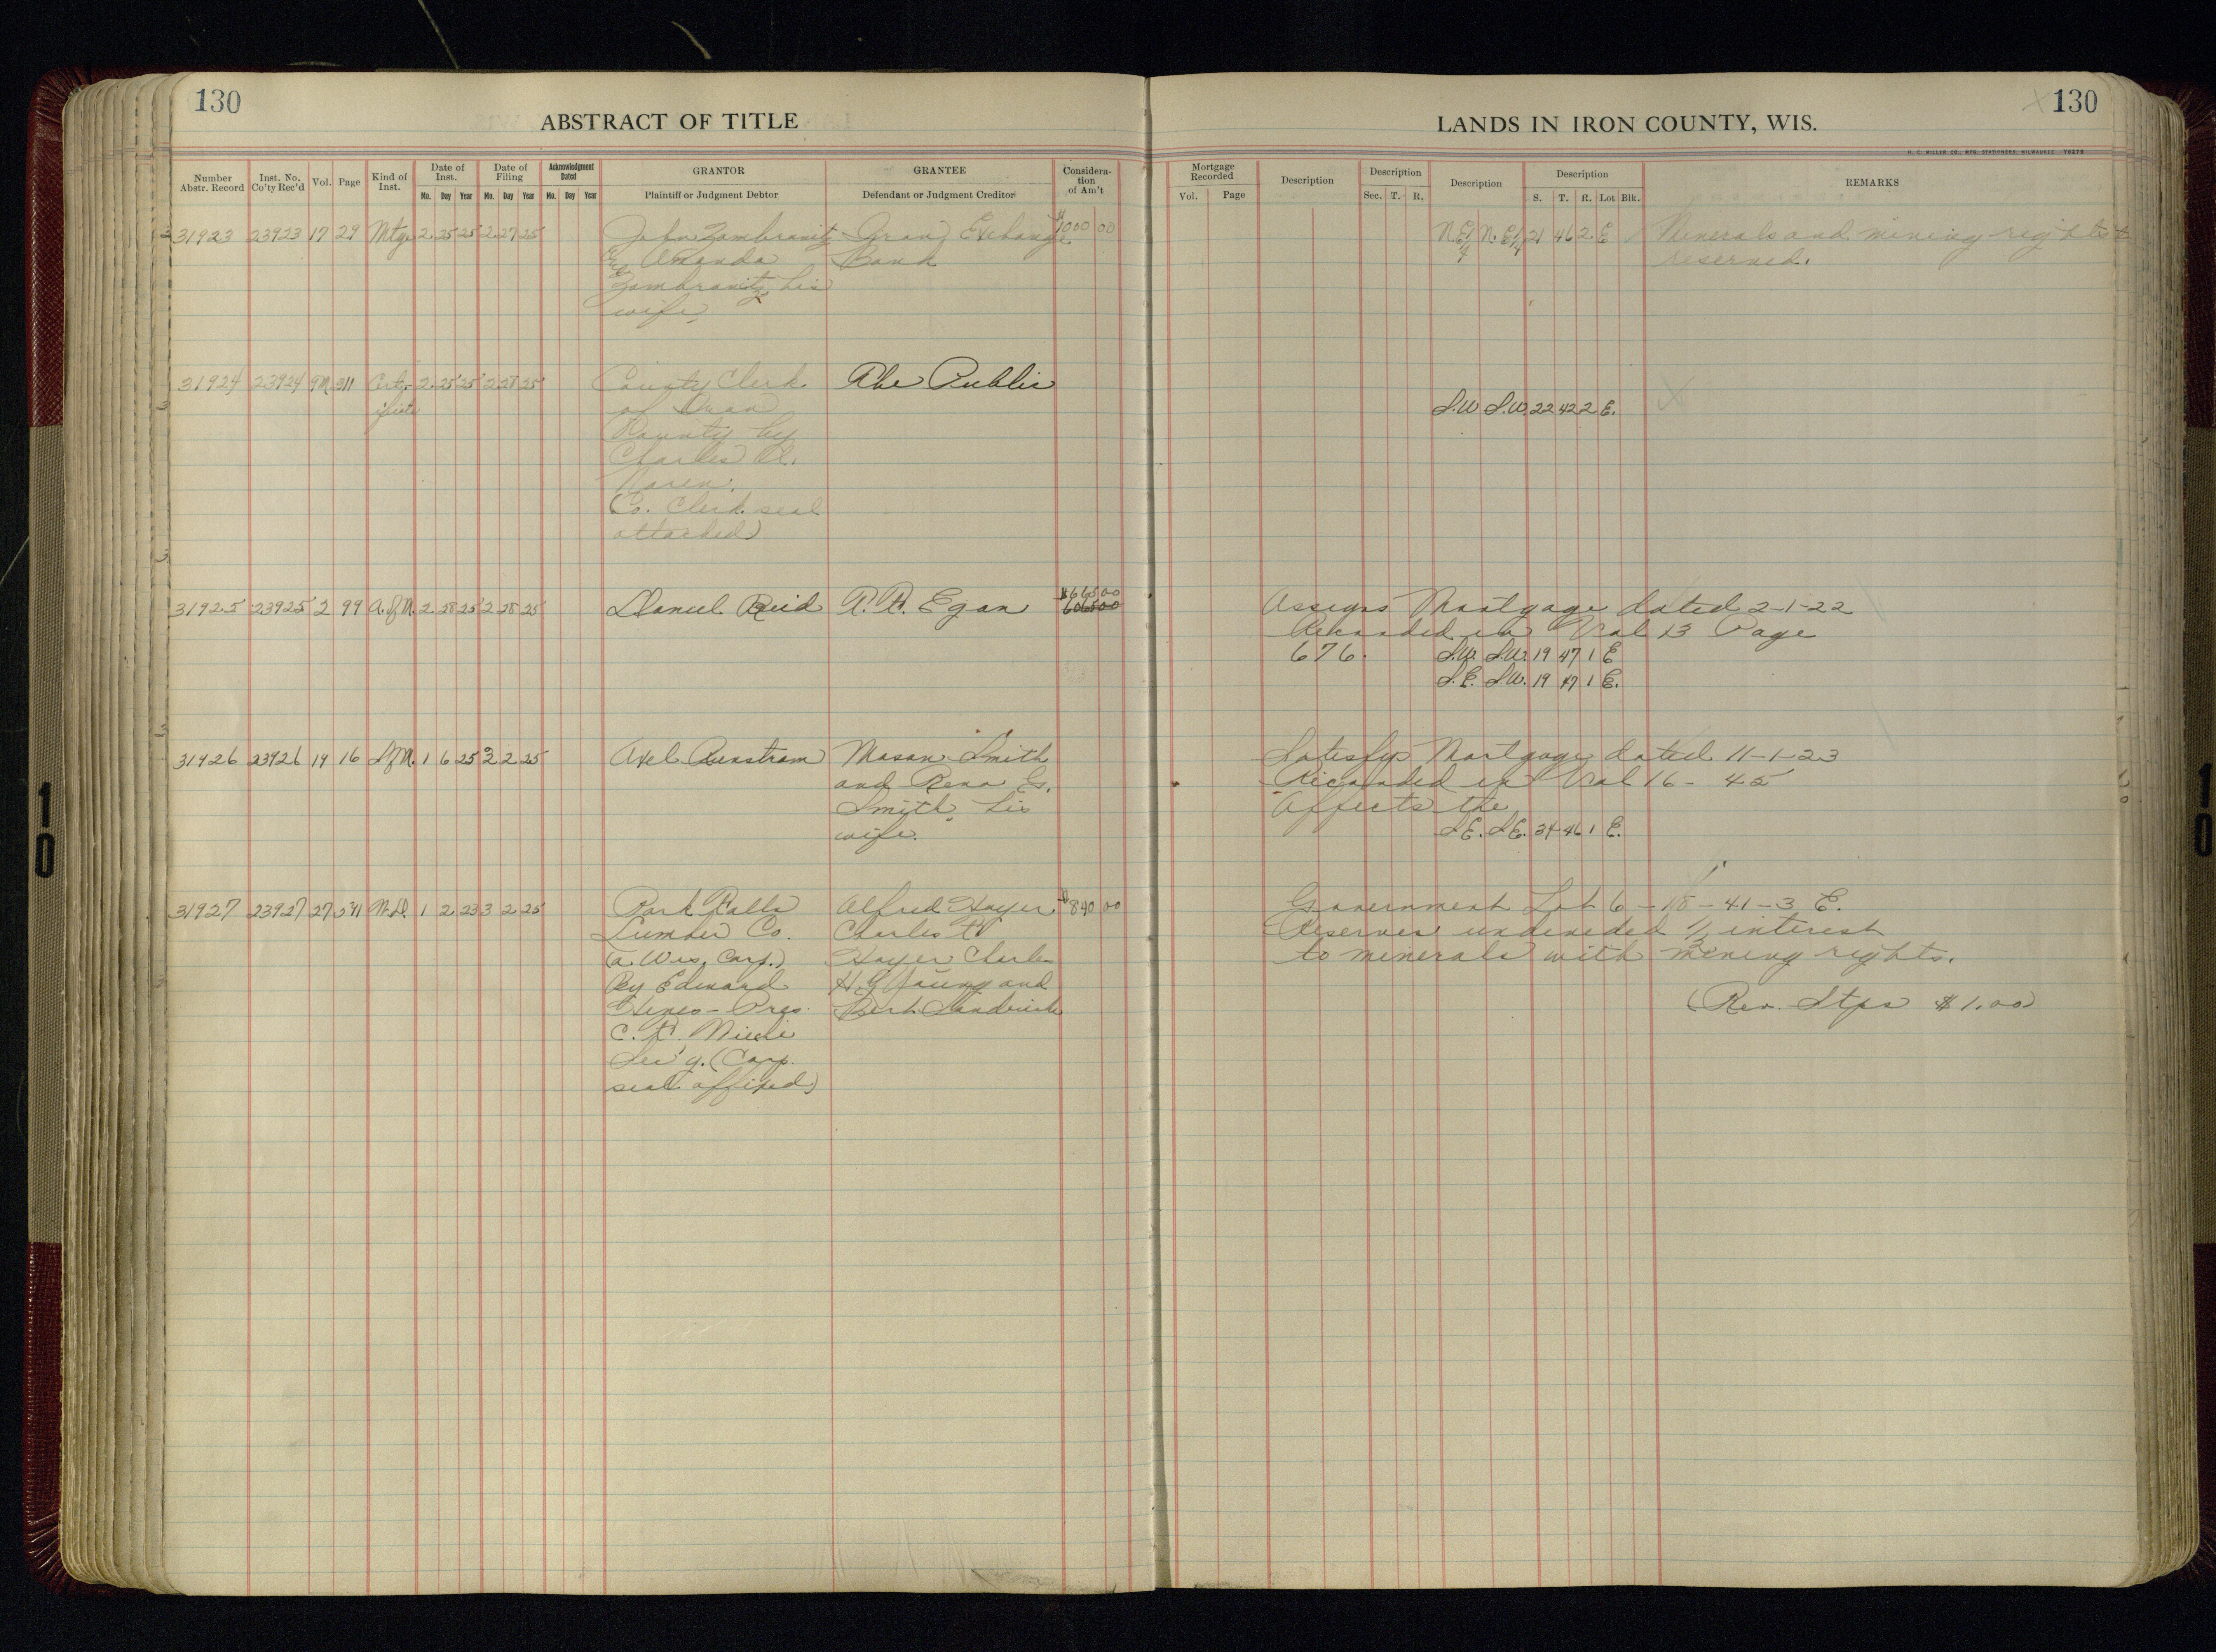 130
ABSTRACT OF TITLE
Number Abstr. Record
Inst. No. Co'ty Rec'd
Vol.
Page
Kind of Inst.
Date of Inst.
Mo. Day Year
Date of Filing
Mo. Day Year
Acknowledgment Dated
Mo. Day Year
GRANTOR
Plaintiff or Judgment Debtor
GRANTEE
Defendant or Judgment Creditor
Considera-
tion
of Am't
31923 23923 17 29 Mtge 2 25 25 2 27 25 John Zambrovitz Iron Exchange $1000 00
& Amanda Bank
Zambrovitz his
wife
31924 23924 311 Cert- 2 25 25 2 28 25 County Clerk The Public
ificate of Iron
County by
Charles
Co. Clerk seal
attached)
$665 00
31925 23925 2 99 A.ofM. 2 28 25 2 28 25 Daniel Reid Egan
31926 23926 19 16 S.ofM. 1 6 25 3 2 25 Axel Runstrom Mason Smith
and Rena
Smith, his
wife.
31927 23927 27 541 W.D. 1 2 23 3 2 25 Park Falls Alfred Hoyer $840 00
Lumber Co. Charles
(a Wis. Corp.) Hoyer Charles
By Edward H. Young and
Hines - Pres. Bert
C. F.
Sec'y. (Corp.
seal affixed)
130
LANDS IN IRON COUNTY, WIS.
H. C. MILLER CO., MFG. STATIONERS, MILWAUKEE
Mortgage Recorded
Vol. Page
Description
Description
Sec. T. R.
Description
Description
S. T. R. Lot Blk.
REMARKS
N.E¼ N.E¼ 21 46 2 E Minerals and mining rights
reserved.
S.W S.W. 22 42 2 E. X
Assigns Mortgage dated 2-1-22
Recorded in Vol 13 Page
676. S.W. S.W. 19 47 1 E
S.E. S.W. 19 47 1 E.
Satisfys Mortgage dated 11-1-23
Recorded in Vol 16 - 45
Affects the
S.E. S.E. 34 46 1 E.
Government Lot 6 - 18 - 41 - 3 E.
Reserves undivided ½ interest
to minerals with mining rights.
(Rev. Stps $1.00)